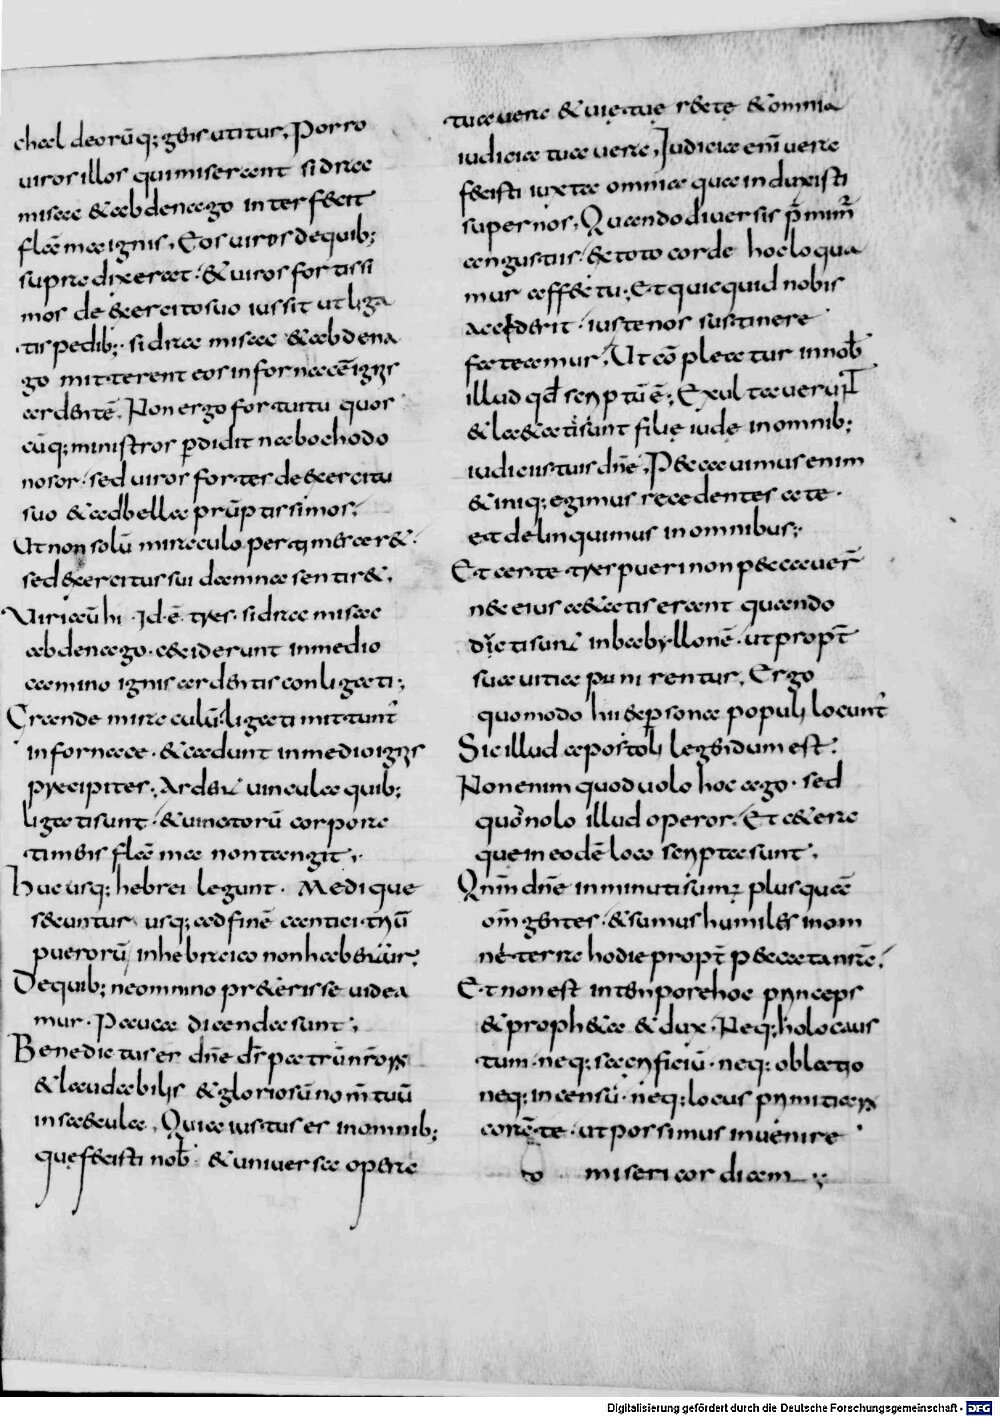 chael deorūq; gen̄s utitur, Porro
uiros illos qui miserant sidrac
misac & abdenago interfecit
flāma ignis, Eos uiros dequib;
supra dixerat & uiros fortissi
mos de exercito suo iussit ut liga
tis pedib; sidrac misac & abdena
go mitterent eos in fornacē ignis
ardentē. Non ergo fortuitu quos
cūq; ministros ꝑdidit nabochodo
nosor. sed uiros fortes de exercitu
suo & ad bella prūptissimos;
Ut non solū miraculo perqi mearer&.
sed exercitus sui damna sentir&,
Uiri aū hi .Id.ē. tres. sidrac misac
abdenago. ceciderunt in medio
camino ignis ardentis conligati;
Grande miraculū ligati mittunt̄
in fornace. & cadunt in medio ignis
precipites; Ardent uincula quib;
ligati sunt & uinctorū corpora
timens flāma non tangit;
Huc usq; hebrei legunt. Medi que
secuntur usq; ad finē cantici triū
puerorū in hebraico non habentur;
De quib; ne omnino preterisse uidea
mur. Pauca dicenda sunt;
Benedictus es dn̄e ds̄ patrū nr̄orꝝ
& laudabilis & gloriosū nom̄ tuū
in saecula, Quia iustus es in omnib;
quę fecisti nob̄ & uniuersa opera
tua uera & uię tuę rectę & omnia
iudicia tua uera, Iudicia enī uera
fecisti iuxta omnia quae induxisti
super nos, Quando diuersis p̄mimr̄
angustiis & toto corde hoc loqua
mur affectu; Et quicquid nobis
acciderit iuste nos sustinere
fateamur, Ut cōpleatur in nob̄
illud qd̄ scriptū ē; Exultauerunt
& laetati sunt filię iudę in omnib;
iudiciis tuis dn̄e, Peccauimus enim
& iniq; egimus recedentes a te.
et delinquimus in omnibus;
Et certe tres pueri non peccauer̄
nec eius aetatis erant quando
ducti sunt in babyllonē. ut propt̄
sua uitia punirentur, Ergo
quomodo hi ex persona populi locunt̄
Sic illud apostoli legendum est.
Non enim quod uolo hoc ago. sed
quod nolo illud operor. Et cetera
que in eodē loco scripta sunt,
Qnm̄ dn̄e inminuti sumꝰ plus quā
om̄ gentes. & sumus humiles in om
ne terra hodie propt̄ peccata nr̄a;
Et non est in tempore hoc princeps
& propheta & dux. Neq; holocaus
tum. neq; sacrificiū. neq; oblatio
neq; incensū. neq; locus primitiarꝝ
corā te. ut possimus inuenire
misericordiam
Digitalisierung gefördert durch die Deutsche Forschungsgemeinschaft - DFG